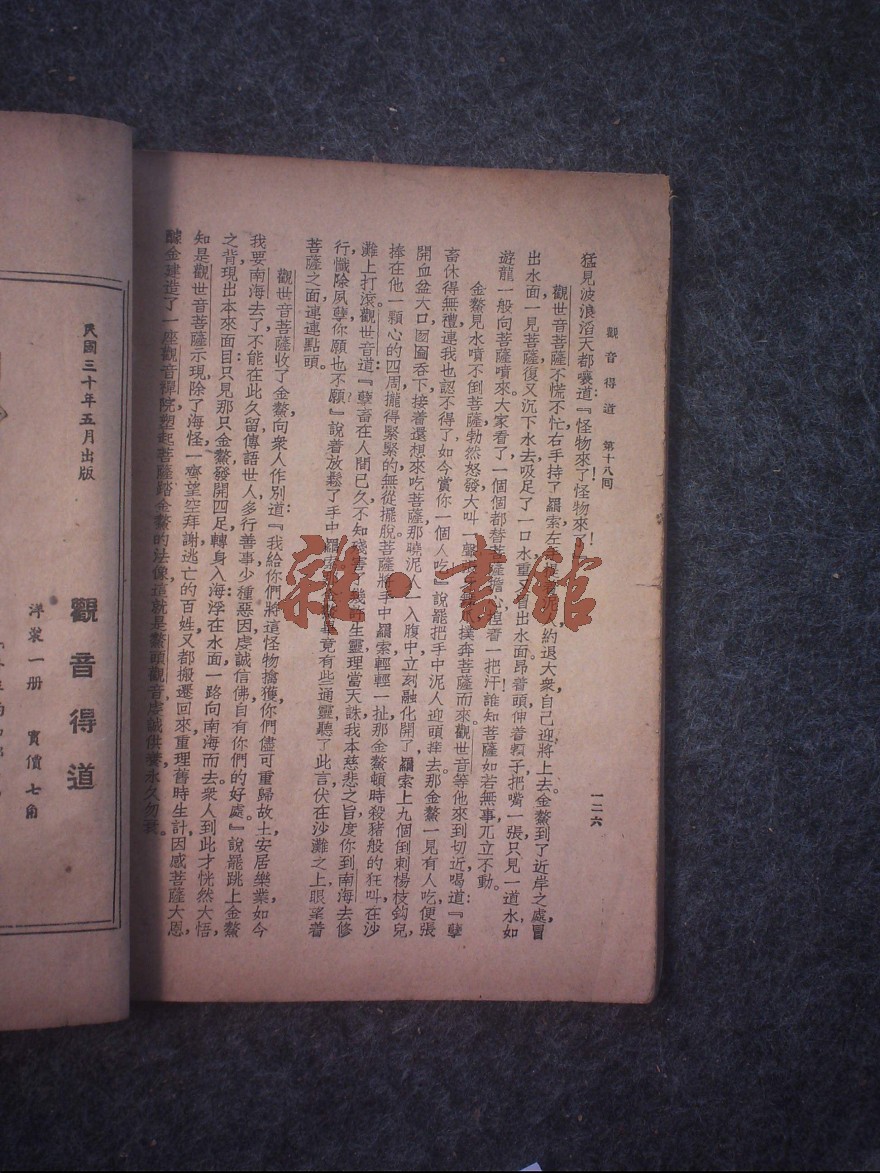 觀音得道 第十八囘 一二六
猛見波浪滔天都嚷道:『怪物來了!怪物來了!
觀世音菩薩不慌不忙右手持了羂索左手 約退大衆自己迎將上去金鰲到了近岸之處冒
出水面一見菩薩復又沉下水去吸足了一口水重 冒出水面昂着頭伸着頸子把嘴一張只見一道水如
遊龍一般向菩薩噴來大家看了一個個都替菩薩擔心揑着一把汗!誰知菩薩如若無事兀立不動。
金鰲見水噴不倒菩薩勃然怒發大叫一聲 撲奔菩薩而來觀世音等他來到切近喝道:『孽
畜休得無禮連我也認不得了如今賞你一個人吃』說罷把手中泥人迎頭摔去那金鰲一見有人吃便張
開血盆大口囫圇吞下接着還想來吃菩薩那曉泥人一入腹中立刻融化開了羂索上九個倒刺楊枝鈎兒,
捧在他一顆心的四周攏得緊緊的無從擺脫菩薩將手中羂索輕輕一扯那金鰲頓時殺豬般的狂叫在沙
灘上打滾。觀世音道:『孽畜在人間已久不知殘害 幾許生靈理當天誅我本慈悲之旨度你到南海去修
行懺除夙孽你願也不願』說着放鬆了手中羂索 畢竟有些通靈聽了此言伏在沙灘之上眼望着
菩薩之面連連點頭。
觀世音菩薩收了金鰲向衆人作別道:『我給你們將這怪物擒獲你們儘可重歸故土安居樂業如今
我要南海去了不能在此久留傳語世人多行善事少種惡因虔誠信佛自有你們的好處』說罷跳上金鰲
之背現出本來面目只見那只金鰲發開四足轉身入海浮在水面一路向南海而去衆人到此才恍然大悟,
知是觀世音菩薩示現除了海怪一齊望空拜謝逃亡的百姓又都搬還回來重理舊時生計因感菩薩大恩,
醵金建造了一座觀音禪院塑起菩薩踏金鰲的法像這就是鰲頭觀音虔誠供養永久勿衰。
民國三十年五月出版
觀音得道
洋裝一册 實價七角
雜·書館